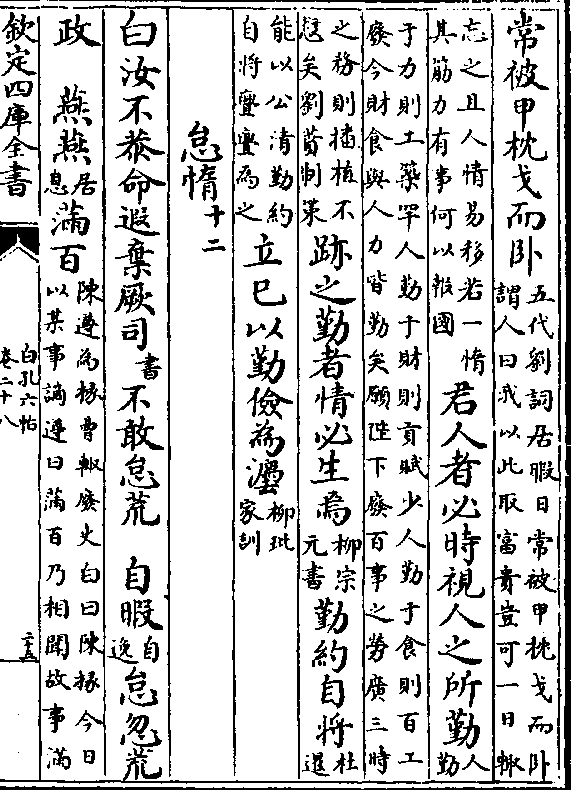 常被甲枕戈而卧五代劉詞居暇日常被甲枕戈而卧謂人曰我以此取富貴豈可一日輙
忘之且人情易移若一惰其筋力有事何以報國君人者必時視人之所勤人勤
于力則工築罕人勤于財則貢賦少人勤于食則百工廢今財食與人力皆勤矣願陛下廢百事之勞廣三時
之務則播植不愆矣劉蕡制策跡之勤者情必生焉柳宗元書勤約自將杜暹
能以公清勤約自將亹亹為之立已以勤儉為灋柳玭家訓
怠惰十二
曰汝不恭命遐棄厥司書不敢怠荒 自暇自逸怠忽荒
政 燕燕居息滿百陳遵為掾曹輙廢史白曰陳掾今日以某事謫遵曰滿百乃相聞故事滿
欽定四庫全書 白孔六帖 卷二十八 二十五